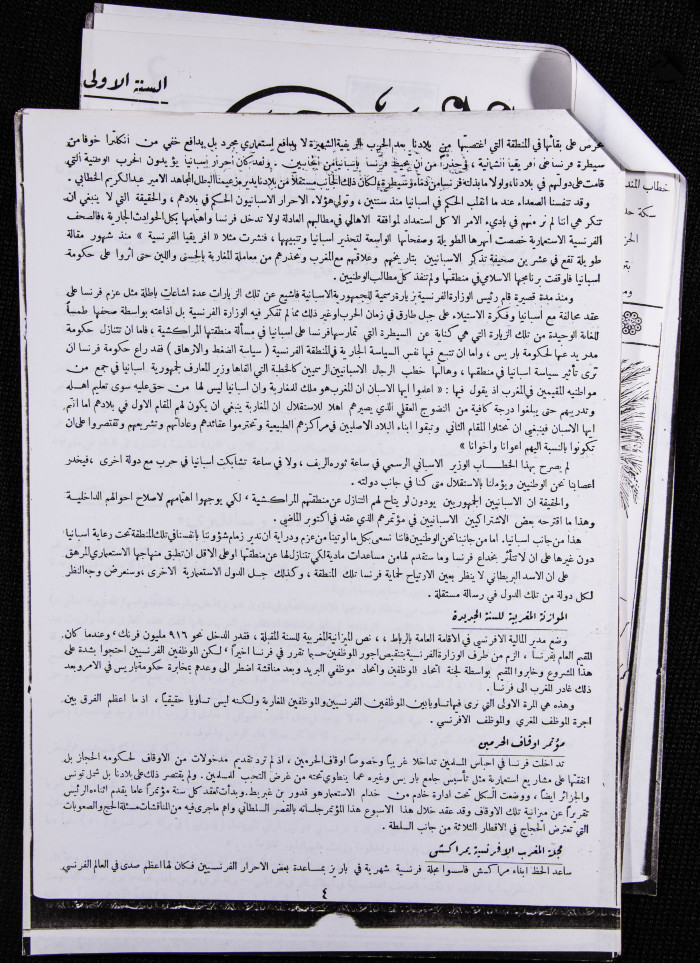 السنة الاولى
خطاب المند
سكة حد
الحز
حرص على بقائها في المنطقة التي اغتصبتها من بلادنا بعد الحرب الريفية الشهيرة لا يدافع استعماري مجرد بل يدافع خفي من انكلترا خوفا من
سيطرة فرنسا على افريقيا الشمالية ، في حذرا من ان تحيط فرنسا باسبانيا من الجانبين . ولقد كان أحرار اسبانيا يؤيدون الحرب الوطنية التي
قامت على دولتهم في بلادنا، ولولا ما بذلته فرنسا من دهاء وسيطرة ولكان ذلك الجانب مستقلا من بلادنا يدير زعيمنا البطل المجاهد الامير عبد الكريم الخطابي .
وقد تنفسنا الصعداء عند ما انقلب الحكم في اسبانيا منذ سنتين ، وتولى هؤلاء الاحرار الاسبانيون الحكم في بلادهم ، والحقيقة التي لا ينبغي ان
تنكر هي اننا لم نر منهم في بادىء الامر الا كل استعداد لموافقة الاهالي في مطالبهم العادلة لولا تدخل فرنسا واهتمامها بكل الحوادث الجارية ، فالصحف
الفرنسية الاستعمارية خصصت أنهرها الطويلة وصفحاتها الواسعة لتحذير اسبانيا وتنبيهها ، فنشرت مثلا « افريقيا الفرنسية » منذ شهور مقالة
طويلة تقع في عشرين صحيفة تذكر الاسبانيين بتاريخهم وعلاقتهم مع المغرب وتحذرهم من معاملة المغاربة بالحسنى واللين حتى اثروا على حكومة
اسبانيا فاوقفت برنامجها الاسلامي في منطقتها ولم تنفذ كل مطالب الوطنيين .
ومنذ مدة قصيرة قام رئيس الوزارة الفرنسية بزيارة رسمية للجمهورية الاسبانية فاشيع عن تلك الزيارات عدة اشاعات باطلة مثل عزم فرنسا على
عقد محالفة مع أسبانيا وفكرة الاستيلاء على جبل طارق في زمان الحرب وغير ذلك مما لم تفكر فيه الوزارة الفرنسية بل اذاعته بواسطة صحفها طمسا
للغاية الوحيدة من تلك الزيارة التي هي كناية عن السيطرة التي تمارسها فرنسا على اسبانيا في مسألة منطقتها المراكشية ، فاما ان تتنازل حكومة
مدريد عنها لحكومة باريس ، واما ان تتبع فيها نفس السياسة الجارية في المنطقة الفرنسية ( سياسة الضغط والارهاق ) فقد راع حكومة فرنسا ان
ترى تأثير سياسة اسبانيا في منطقتها ، وهالها خطب الرجال الاسبانيين الرسميين كالخطبة التي القاها وزير المعارف لجمهورية اسبانيا في جمع من
مواطنيه المقيمين في المغرب اذ يقول فيها : « اعلموا ايها الاسبان ان المغرب هو ملك للمغاربة وان اسبانيا ليس لها من حق عليه سوى تعليم اهله
وتدريبهم حتى يبلغوا درجة كافية من النضوج العقلي الذي يصيرهم اهلا للاستقلال ان المغاربة ينبغي ان يكون لهم المقام الاول في بلادهم اما انتم
ايها الاسبان فينبغي ان تحتلوا المقام الثاني وتبقوا ابناء البلاد الاصليين في مراكزهم الطبيعية وتحترموا عقائدهم وعاداتهم وتشريعهم وتقتصروا على ان
تكونوا بالنسبة اليهم اعوانا واخوانا »
لم يصرح بهذا الخطاب الوزير الاسباني الرسمي في ساعة ثورة الريف ، ولا في ساعة تشابكت اسبانيا في حرب مع دولة اخرى ، فيخدر
اعصابنا نحن الوطنيين ويؤملنا بالاستقلال متى كنا في جانب دولته .
والحقيقة ان الاسبانيين الجمهوريين يودون لو يتاح لهم التنازل عن منطقتهم المراكشية ، لكي يوجهوا اهتمامهم لاصلاح احوالهم الداخلية
وهذا ما اقترحه بعض الاشتراكيين الاسبانيين في مؤتمرهم الذي عقد في اكتوبر الماضي .
هذا من جانب اسبانيا . اما من جانبنا نحن الوطنيين فاننا نسعى بكل ما اوتينا من عزم ودراية ان ندير زمام شؤوننا بانفسنا في تلك المنطقة تحت رعاية اسبانيا
دون غيرها على ان لا تتأثر بخداع فرنسا وما ستقدم لها من مساعدات مادية لكي تتنازل لها عن منطقتها او على الاقل ان تطبق منهاجها الاستعماري المرهق
على ان الاسد البريطاني لا ينظر بعين الارتياح لحماية فرنسا تلك المنطقة ، وكذلك جل الدول الاستعمارية الاخرى ، وسنعرض وجه النظر
لكل دولة من تلك الدول في رسالة مستقلة .
الموازنة المغربية للسنة الجديدة
وضع مدير المالية الافرنسي في الاقامة العامة بالرباط ، ، نص الميزانية المغربية للسنة المقبلة ، فقدر الدخل نحو ٩١٦ مليون فرنك ، وعندما كان
المقيم العام بفرنسا ، الزم من طرف الوزارة الفرنسية بتنقيص اجور الموظفين حسبما تقرر في فرنسا اخيرا ، لكن الموظفين الفرنسيين احتجوا بشدة على
هذا المشروع وخابروا المقيم بواسطة لجنة اتحاد الموظفين واتحاد موظفي البريد وبعد مناقشة اضطر الى وعدهم بمخابرة حكومة باريس في الامر وبعد
ذلك غادر المغرب الى فرنسا .
وهذه هي المرة الاولى التي نرى فيها تساويا بين الموظفين الفرنسيين والموظفين المغاربة ولكنه ليس تساويا حقيقيا ، اذ ما اعظم الفرق بين
اجرة الموظف المغربي والموظف الافرنسي .
مؤتمر اوقاف الحرمين
تداخلت فرنسا في احباس المسلمين تداخلا غريبا وخصوصا اوقاف الحرمين ، اذ لم ترد تقديم مدخولات من الاوقاف لحكومة الحجاز بل
انفقتها على مشاريع استعمارية مثل تأسيس جامع باريس وغيره مما ينطوي تحته من غرض التحبب للمسلمين . ولم يقتصر ذلك على بلادنا بل شمل تونس
والجزائر ايضا ، ووضعت الكل تحت ادارة خادم من خدام الاستعمار هو قدور بن غبريط . وبدأت تعقد كل سنة مؤتمرا عاما يقدم اثناءه الرئيس
تقريرا عن ميزانية تلك الاوقاف وقد عقد خلال هذا الاسبوع هذا المؤتمر جلساته بالقصر السلطاني واهم ما جرى فيه من المناقشات مسئلة الحج والصعوبات
التي تعترض الحجاج في الاقطار الثلاثة من جانب السلطة .
مجلة المغرب الافرنسية بمراكش
ساعد الحظ ابناء مراكش فاسسوا مجلة فرنسية شهرية في باريز بمساعدة بعض الاحرار الفرنسيين فكان لها اعظم صدى في العالم الفرنسي
٤